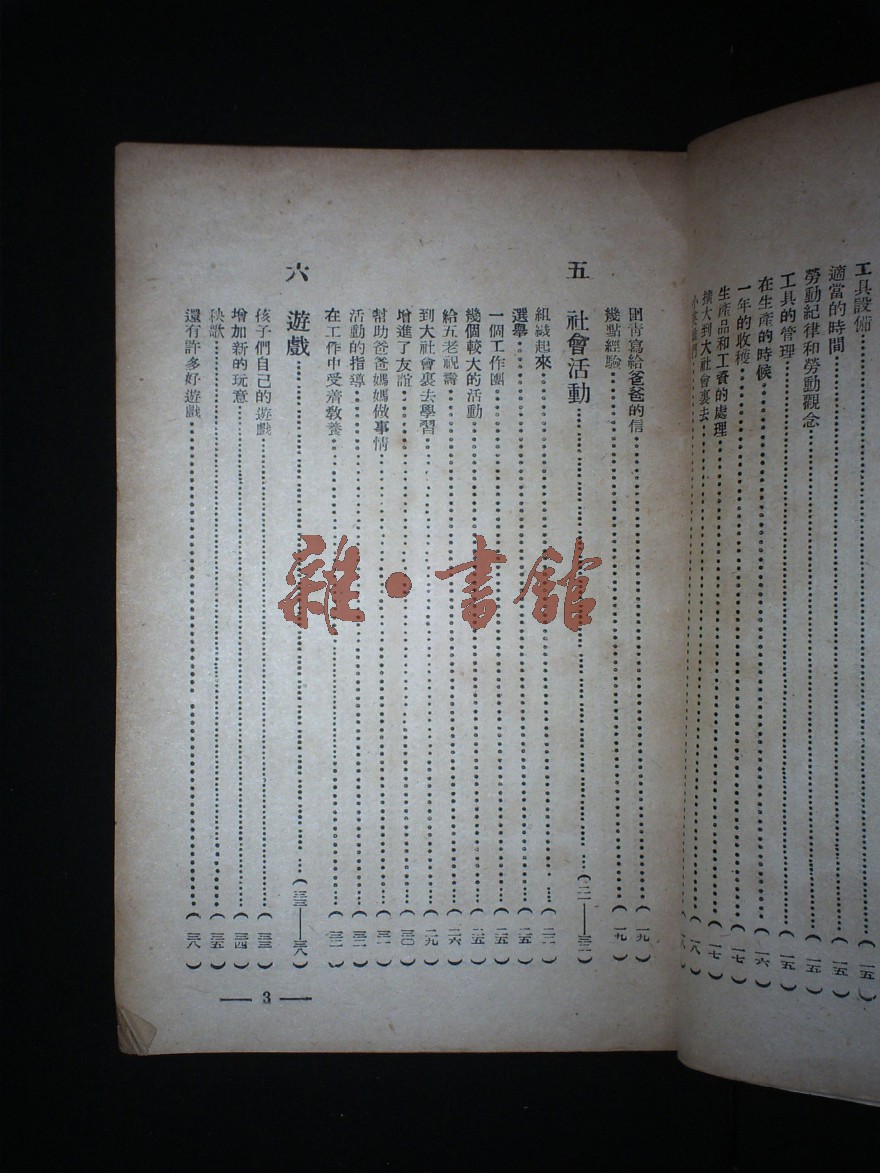 工具設備……(一五)
適當的時間……(一五)
勞動紀律和勞動觀念……(一五)
工具的管理……(一五)
在生產的時候……(一六)
一年的收穫……(一七)
生產品和工資的處理……(一七)
擴大到大社會裏去……(一八)
團青寫給爸爸的信……(一九)
幾點經驗……(一九)
五 社會活動……(二一——三二)
組織起來……(二一)
選舉……(二五)
一個工作團……(二五)
幾個較大的活動……(二五)
給五老祝壽……(二六)
到大社會裏去學習……(二九)
增進了友誼……(三〇)
幫助爸爸媽媽做事情……(三一)
活動的指導……(三二)
在工作中受着教養……(三二)
六 遊戲……(三三——三八)
孩子們自己的遊戲……(三三)
增加新的玩意……(三四)
秧歌……(三五)
還有許多好遊戲……(三八)
— 3 —
雜·書館